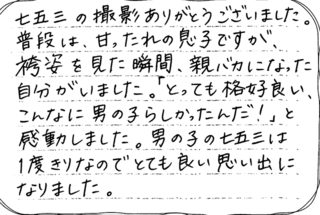 七五三の撮影ありがとうございました。
普段は、甘ったれの息子ですが、
袴姿を見た瞬間、親バカになった
自分がいました。「とっても格好良い、
こんなに男の子らしかったんだ!」と
感動しました。男の子の七五三は
1度きりなのでとても良い思い出に
なりました。